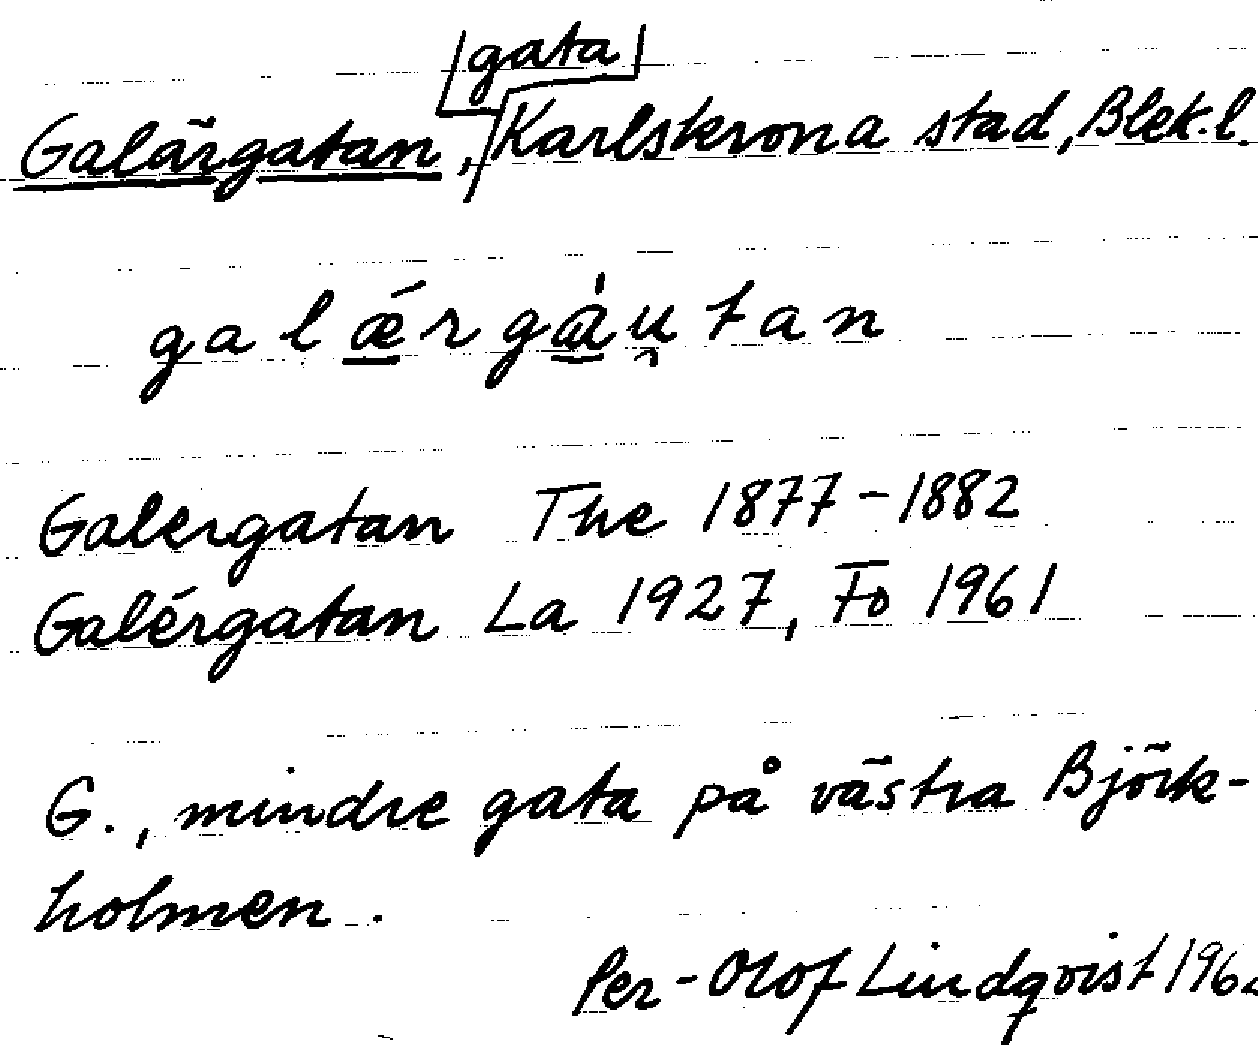 gata
Galärgatan, Karlskrona stad, Blek.l.
galǽrgàu̯tan
Galergatan The 1877-1882
Galérgatan La 1927, Fo 1961
G., mindre gata på västra Björk-
holmen.
Per-Olof Lindqvist